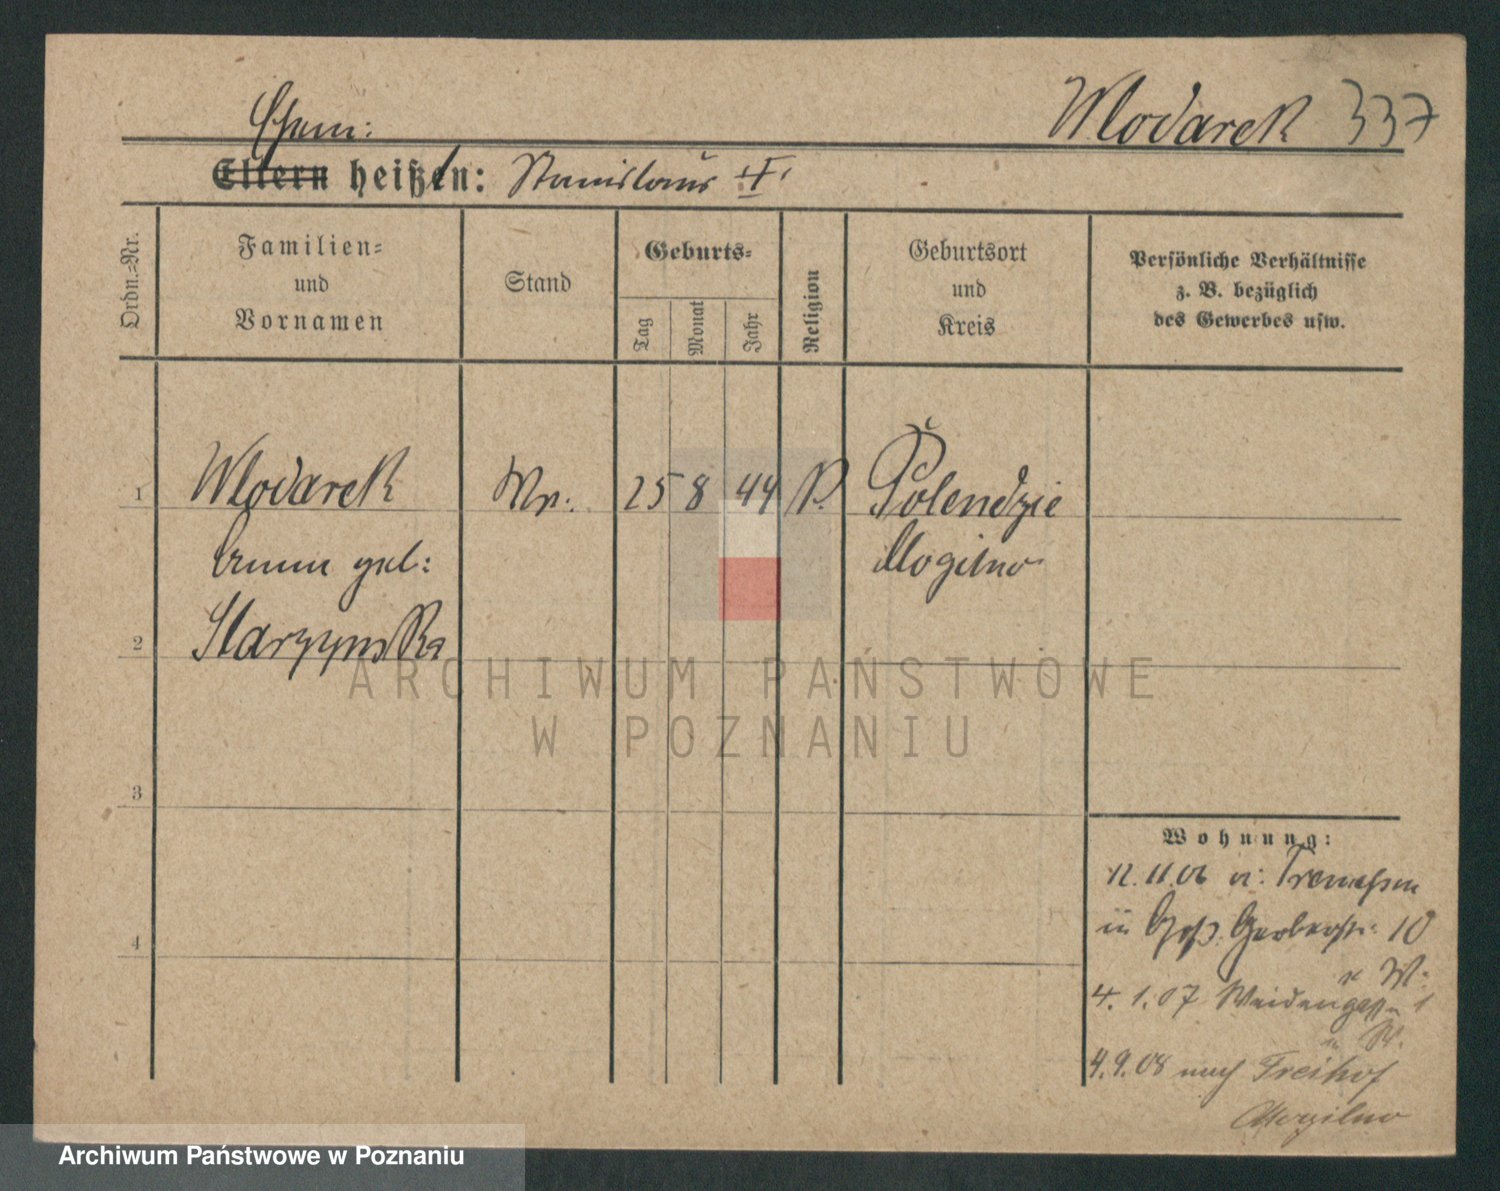 Wlodarek 337
Ehem:
Eltern heißen: Stanislaus
Ordn.=Nr.
Familien=
und
Vornamen
Stand
Geburts=
Tag
Monat
Jahr
Religion
Geburtsort
und
Kreis
Persönliche Verhältnisse
z. B. bezüglich
des Gewerbes usw.
1 Wlodarek Ww. 25 8 44 Polendzie
geb: Mogilno
2 Starzynska
3
4
Wohnung:
12.11.06 Tremessen
in Gerberstr. 10
4.1.07 Weidengasse 1
4.9.08 nach Freihof
Mogilno
ARCHIWUM PAŃSTWOWE
W POZNANIU
Archiwum Państwowe w Poznaniu